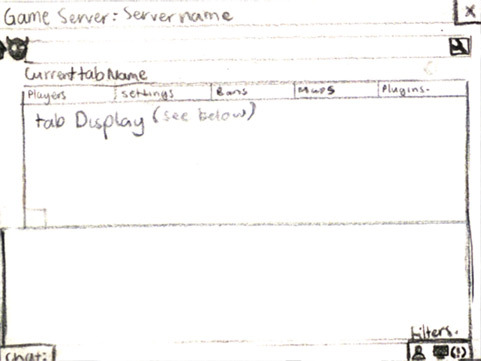 Game Server: Servername
X
CurrenttabName
Players Settings Bans Maps Plugins.
tab Display (see below)
Filters.
Chat: (!)